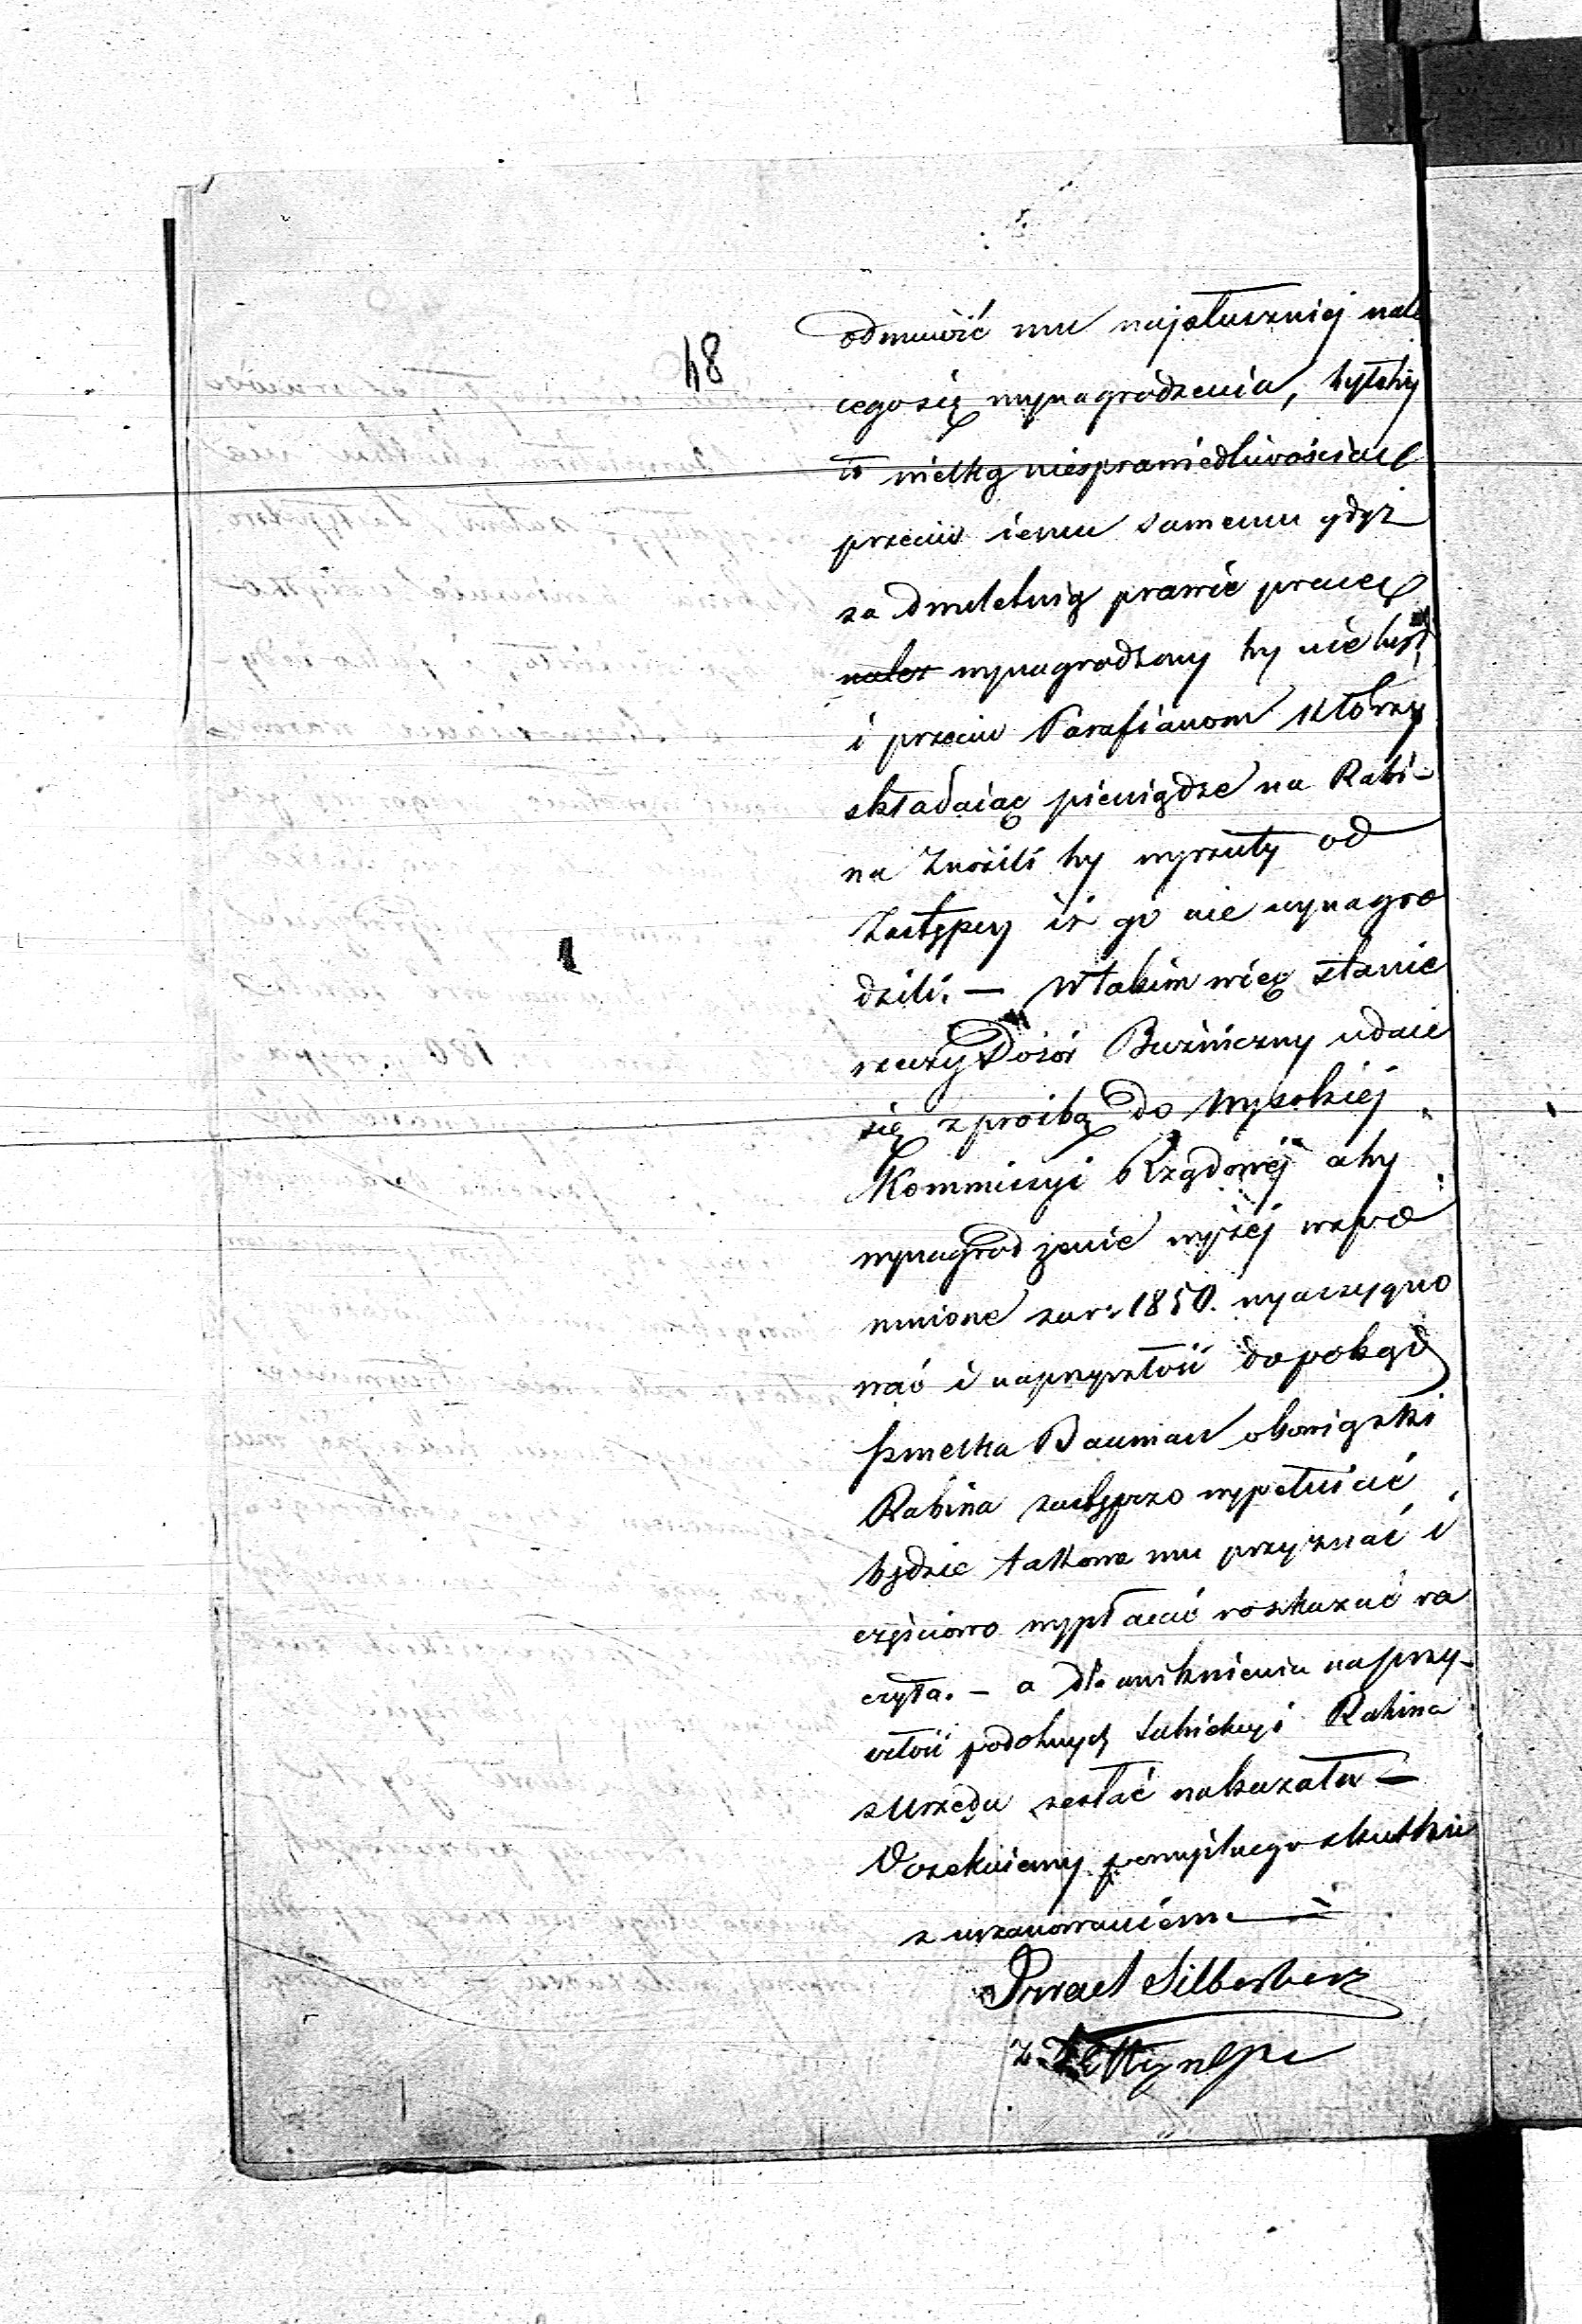 48
odmuwić mu najsłuszniej nale
cegosię wynagrodzenia, byłoby
to wielką niesprawiedliwościącę
przeciw iemu samemu gdyż
za dwuletnią prawie pracę
nalez wynagrodzony by nie był,
i przeciw Parafianom którzy
składaiąc pieniądze na Rabi-
na znosili by wyrzuty od
Zastępcy iż go nie wynagro
dzili. — W takim więc stanie
rzeczy Dozór Bużniczny udaie
się z proźbą do Wysokiéj
Kommissyi Rządowéj aby
wynagrodzenie wyżéj wspo
mnione za r: 1850. wyassygno
wać i naprzyszłość dopokąd
Szmelka Bauman obowiązki
Rabina zastępczo wypełniać
będzie takowe mu przyznać i
częściowo wypłacać roskazać ra
czyła. — a dla uniknienia na przy-
szłość podobnych Rabina
z urzędu zesłać nakazała —
Oczekuiemy pomyślnego skutku
z uszanowaniem
Izrael Silberberg